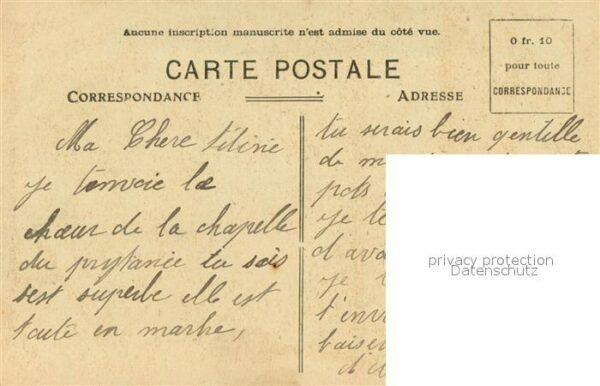 Aucune inscription manuscrite n'est admise du côté vue.
CARTE POSTALE
CORRESPONDANCE
ADRESSE
0 fr. 10
pour toute
CORRESPONDANCE
Ma Chere
je t'envoie le
chœur de la chapelle
du prytanée tu sais
sest superbe elle est
toute en marbre,
tu serais bien gentille
de
pots
je te
d'ava
je
t'env
baiser
privacy protection
Datenschutz